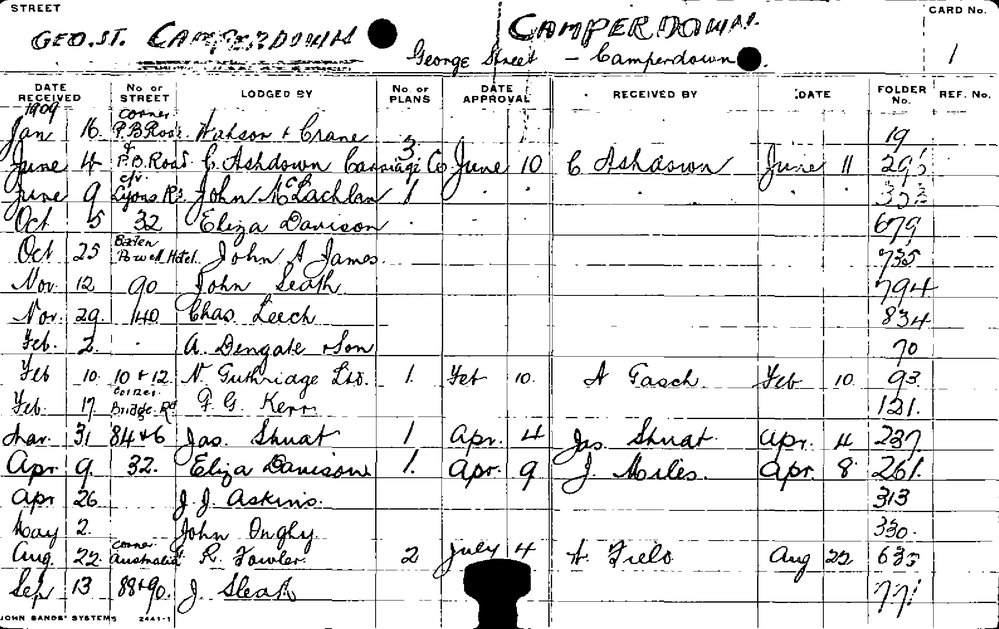 STREET CARD No.
GEO. ST. CAMPERDOWN CAMPERDOWN.
George Street - Camperdown. 1
DATE RECEIVED No. or STREET LODGED BY No. of PLANS DATE APPROVAL RECEIVED BY DATE FOLDER No. REF. No.
1909 corner
Jan 16 P.B. Road Watson & Crane 19
June 4 P.B. Road C. Ashdown Carriage Co 3 June 10 C Ashdown June 11 295
June 9 c/r Lyons Rd John McLachlan 1
Oct 5 32 Eliza Davison 679
Oct 25 Baden Powell Hotel John A James. 735
Nov. 12 90 John Seath 794
Nov. 29. 140 Chas. Leech 834
Feb. 2. A. Dengate & Son 70
Feb 10. 10 & 12 N Guthriage Ltd. 1. Feb 10. A Gasch. Feb 10. 93.
Feb. 17. corner Bridge Rd F. G. Kerr. 121.
Mar. 31 84 & 6 Jas. 1 Apr. 4 Jas. Apr. 4 237
Apr 9. 32. Eliza Davison 1. Apr. 9 J. Miles. Apr. 8. 261.
Apr 26. J. J. Askins. 313
May 2. John 330.
Aug. 22. corner Australia R. Fowler. 2 July 4 H Field Aug 22 633
Sep 13 88 & 90. J. 771
JOHN SANDS' SYSTEMS 2441-1